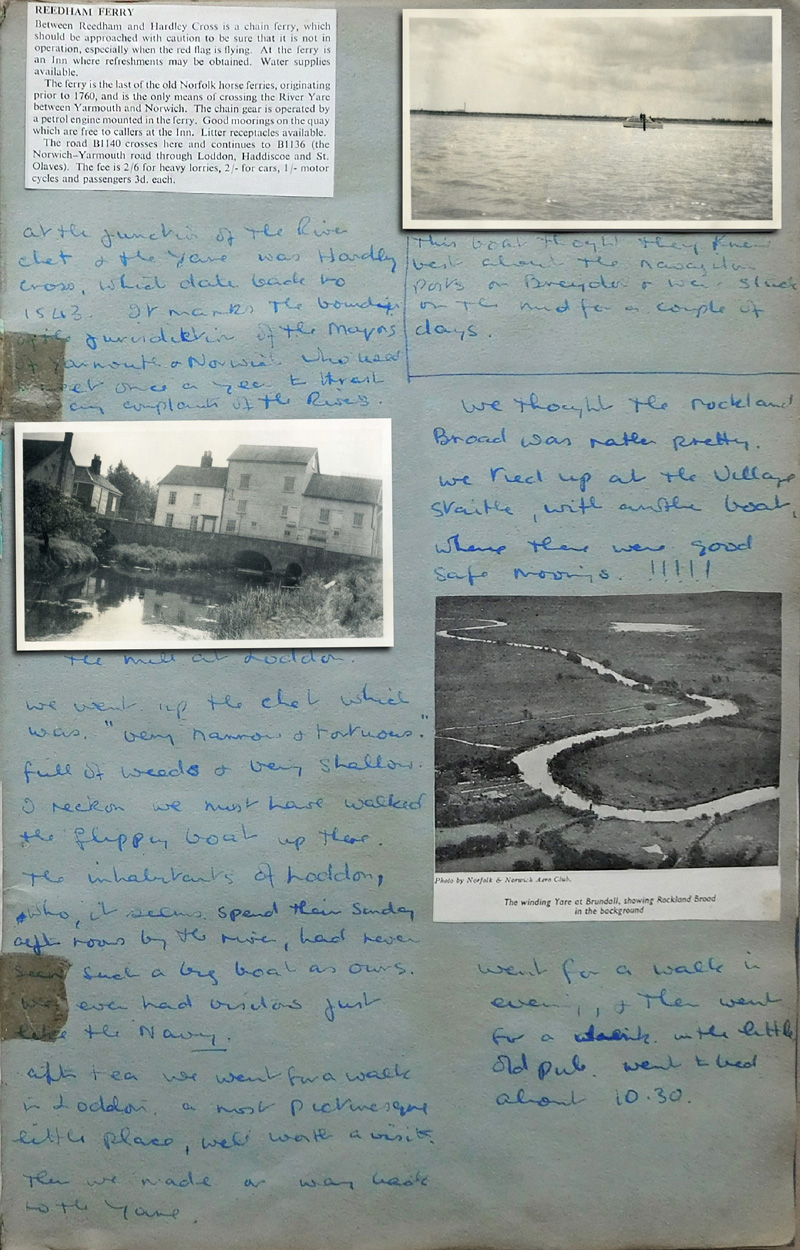 REEDHAM FERRY
Between Reedham and Hardley Cross is a chain ferry, which
should be approached with caution to be sure that it is not in
operation, especially when the red flag is flying. At the ferry is
an Inn where refreshments may be obtained. Water supplies
available.
The ferry is the last of the old Norfolk horse ferries, originating
prior to 1760, and is the only means of crossing the River Yare
between Yarmouth and Norwich. The chain gear is operated by
a petrol engine mounted in the ferry. Good moorings on the quay
which are free to callers at the Inn. Litter receptacles available.
The road B1140 crosses here and continues to B1136 (the
Norwich–Yarmouth road through Loddon, Haddiscoe and St.
Olaves). The fee is 2/6 for heavy lorries, 2/- for cars, 1/- motor
cycles and passengers 3d. each.
at the junction of the River
Chet & the Yare was Hardley
Cross, which date back to
1543. It marks the
jurisdiktion of the Mayors
Yarmouth & Norwich who
once a year to
any complaints of the Rivers.
the mill at Loddon.
we went up the chet which
was. "very narrow & tortuous."
full of weeds & very shallow.
I reckon we must have walked
the flippin boat up there.
The inhabitants of Loddon,
who, it seems spend their Sunday
afternoons by the river, had never
seen such a big boat as ours.
ever had visitors just
like the Navy.
after tea we went for a walk
in Loddon. a most picturesque
little place, well worth a visit.
Then we made our way back
to the Yare.
This boat thought they knew
best about the navagation
posts on Breydon & was stuck
on the mud for a couple of
days.
We thought the Rockland
Broad was rather pretty.
we tied up at the Village
Staithe, with another boat,
where there were good
safe moorings. !!!!!
Photo by Norfolk & Norwich Aero Club.
The winding Yare at Brundall, showing Rockland Broad
in the background
went for a walk in
evening, & then went
for a drink in the little
old pub. went to bed
about 10.30.